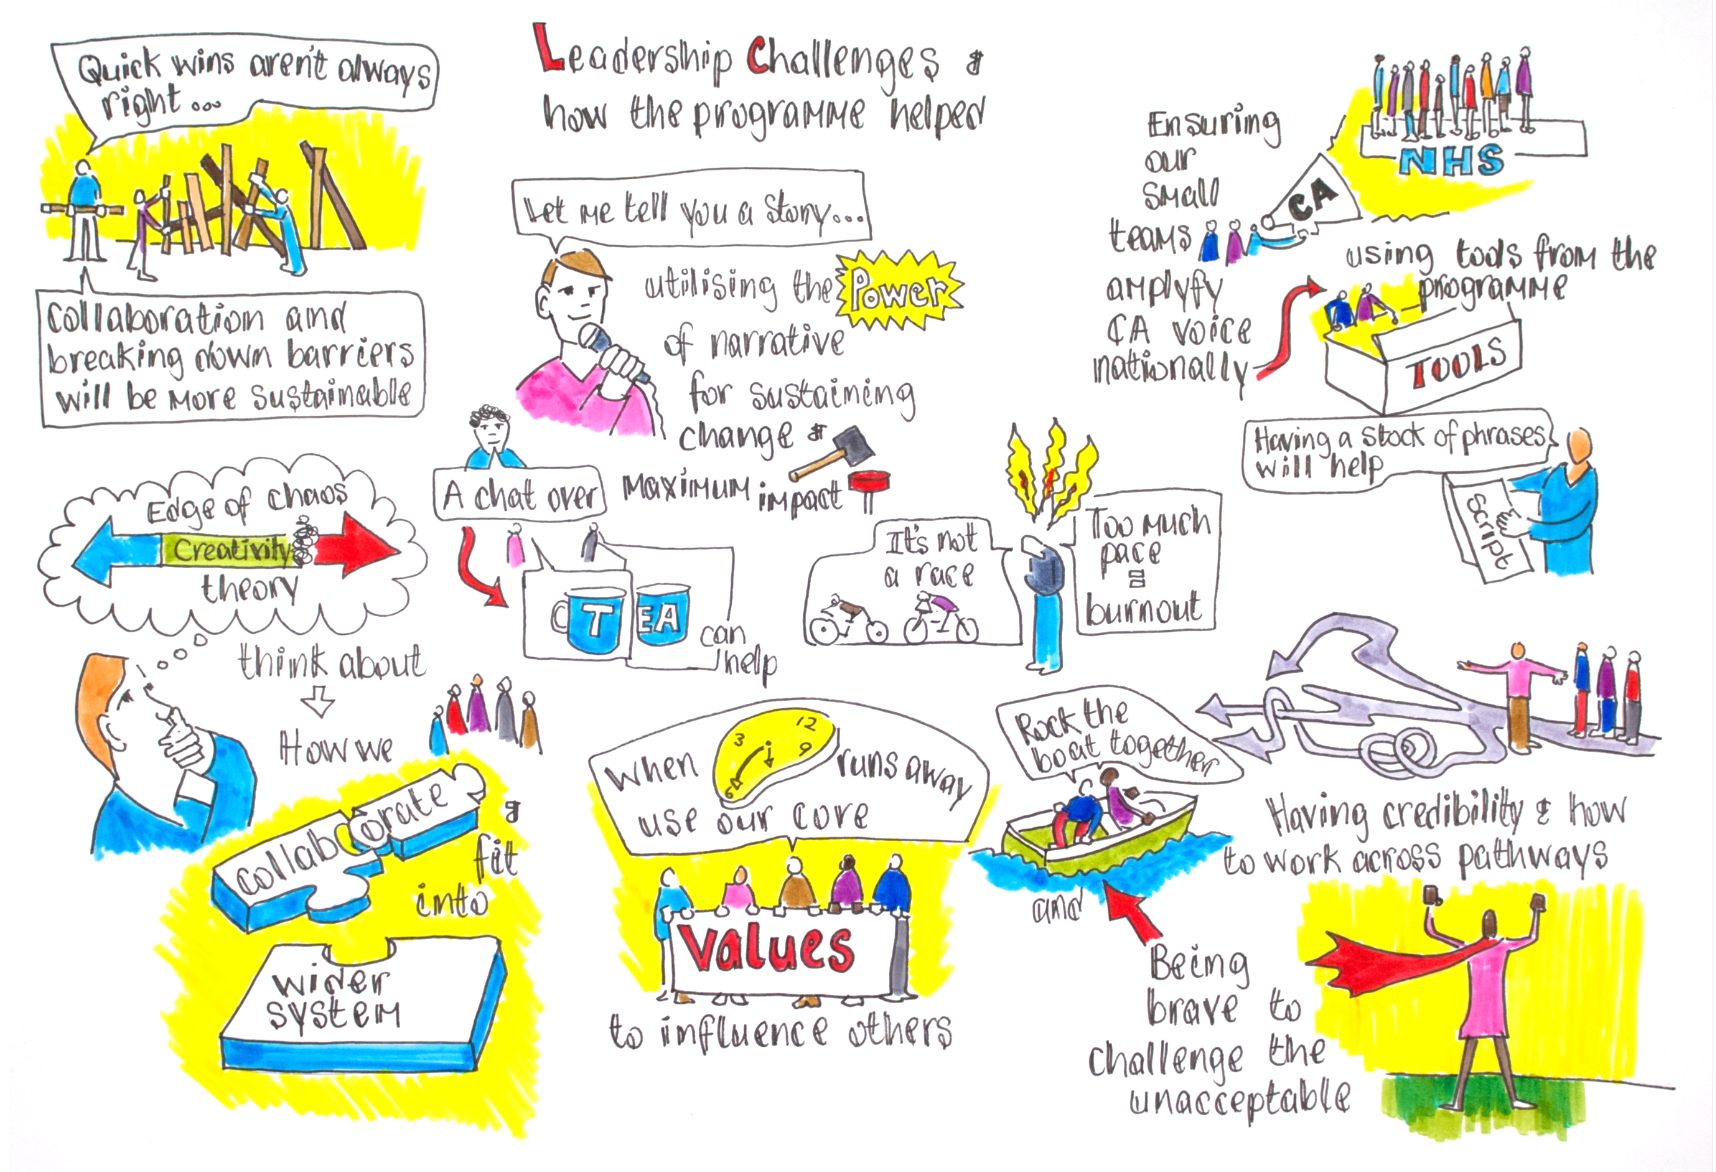 Leadership Challenges &
how the programme helped
Quick wins aren't always
right...
Collaboration and
breaking down barriers
will be more sustainable
Let me tell you a story...
utilising the Power
of narrative
for sustaining
change &
maximum impact
A chat over
TEA
can
help
It's not
a race
Too much
pace
=
burnout
Ensuring
our
small
teams
amplyfy
CA voice
nationally
CA
NHS
using tools from the
programme
TOOLS
Having a stock of phrases
will help
Script
Edge of chaos
Creativity
theory
think about
How we
collaborate
&
fit
into
wider
system
When
12
3
9
6
runs away
use our core
values
to influence others
Rock the
boat together
and
Being
brave to
challenge the
unacceptable
Having credibility & how
to work across pathways